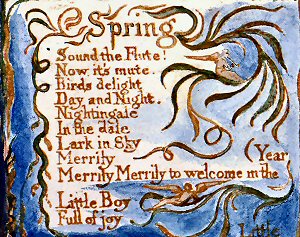 Spring
Sound the Flute!
Now it's mute.
Birds delight
Day and Night.
Nightingale
In the dale
Lark in Sky
Merrily
Merrily Merrily to welcome in the
(Year
Little Boy
Full of joy.
Little